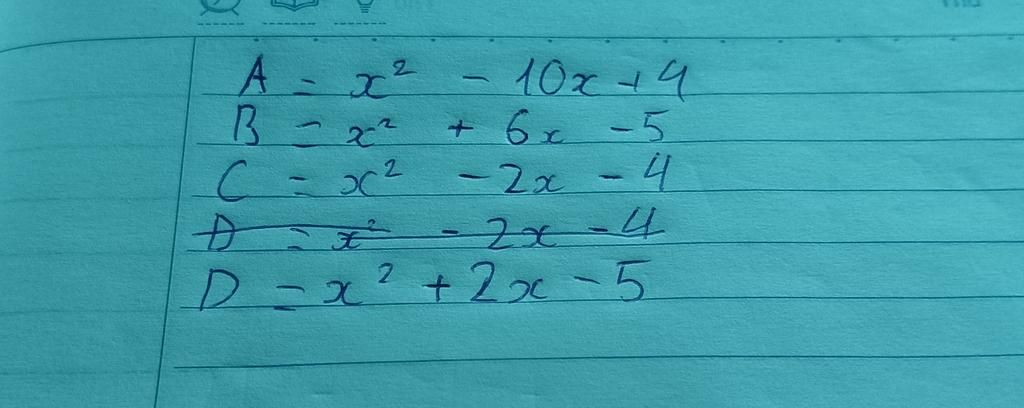 A = x² - 10x + 4
B = x² + 6x - 5
C = x² - 2x - 4
D = x² - 2x - 4
D = x² + 2x - 5